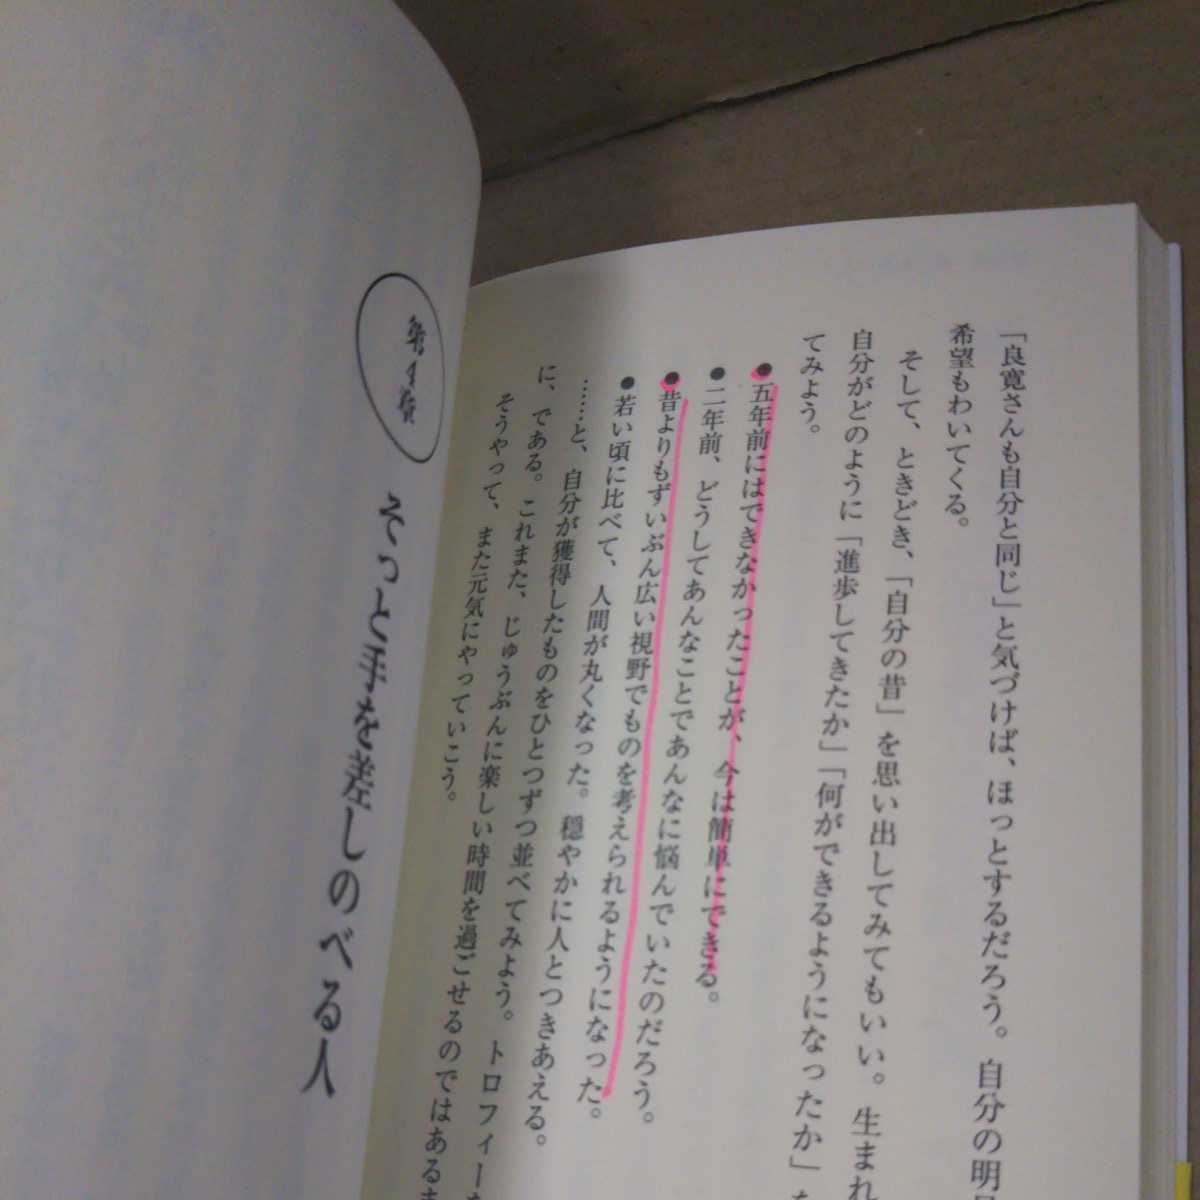 「良寛さんも自分と同じ」と気づけば、ほっとするだろう。自分の明
希望もわいてくる。
そして、ときどき、「自分の昔」を思い出してみてもいい。生まれ
自分がどのように「進歩してきたか」「何ができるようになったか」を
てみよう。
●五年前にはできなかったことが、今は簡単にできる。
●二年前、どうしてあんなことであんなに悩んでいたのだろう。
●昔よりもずいぶん広い視野でものを考えられるようになった。
●若い頃に比べて、人間が丸くなった。穏やかに人とつきあえる。
……と、自分が獲得したものをひとつずつ並べてみよう。トロフィーを
に、である。これまた、じゅうぶんに楽しい時間を過ごせるのではあるま
そうやって、また元気にやっていこう。
第4章
そっと手を差しのべる人